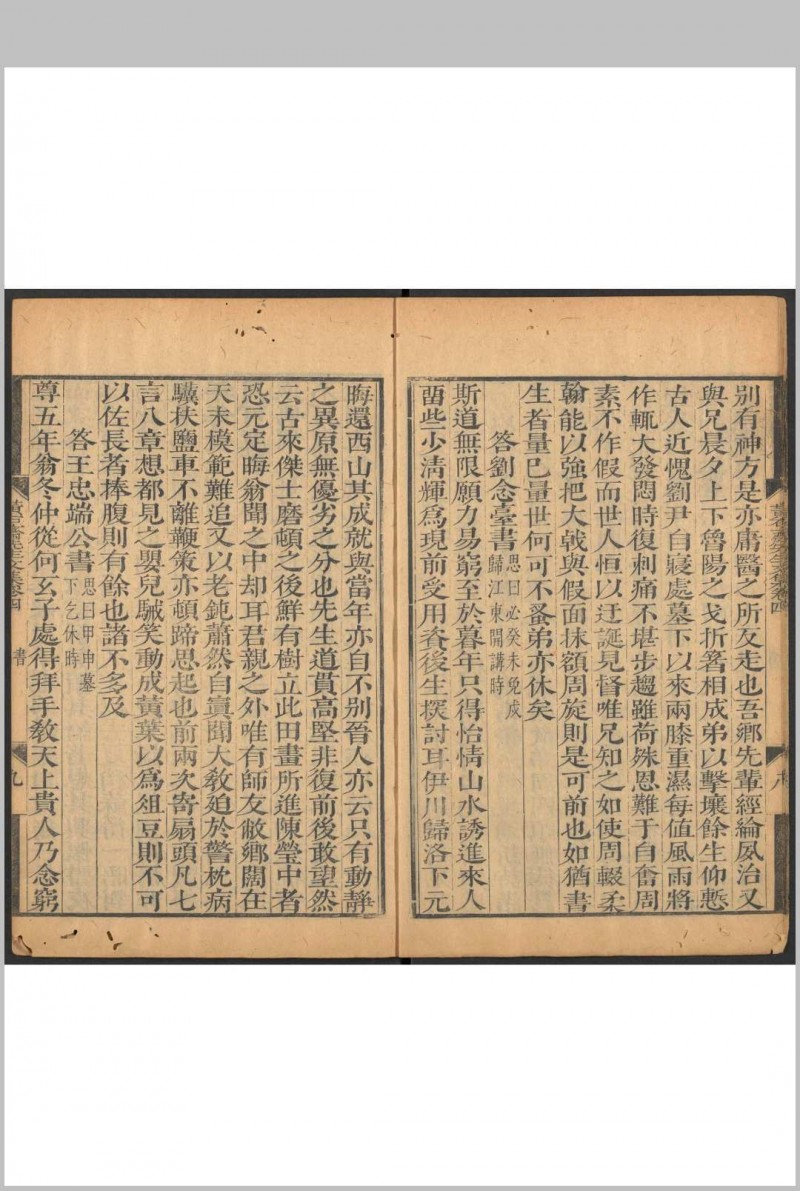 別有神方是亦庸醫之所反走也吾鄉先輩經綸夙治又
與兄晨夕上下魯陽之戈折箸相成弟以擊壤餘生仰慙
古人近愧劉尹自寢處墓下以來兩膝重濕每值風雨將
作輒大發悶時復刺痛不堪步趨雖荷殊恩難于自奮周
素不作假而世人恒以迂誕見督唯兄知之如使周輟柔
翰能以強把大戟與假面抹額周旋則是可前也如猶書
生者量已量世何可不蚤弟亦休矣
答劉念臺書思曰必癸未免戍
歸江東開講時
斯道無限願力易窮至於暮年只得怡情山水誘進來人
畱些少清輝爲現前受用資後生探討耳伊川歸洛下元
晦還西山其成就與當年亦自不別晉人亦云只有動靜
之異原無優劣之分也先生道貫高堅非復前後敢望然
云古來傑士磨頓之後鮮有樹立此田晝所進陳瑩中者
恐元定晦翁聞之中却耳君親之外唯有師友敝鄉闊在
天末模範難追又以老鈍蕭然自寘聞大敎廹於警枕病
驥扶鹽車不離鞭策亦頓蹄思起也前兩次寄扇頭凡七
言八章想都見之嬰兒駴笑動成黃葉以爲俎豆則不可
以佐長者捧腹則有餘也諸不多及
答王忠端公書思曰甲申墓
下乞休時
尊五年翁冬仲從何玄子處得拜手敎天上貴人乃念窮
書
九
八